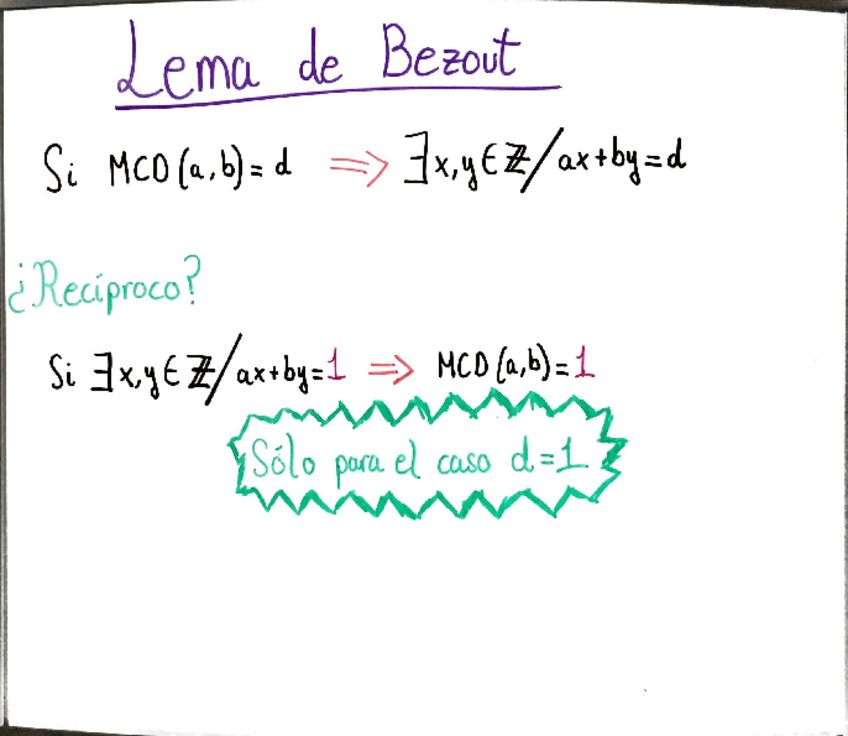 Lema de Bezout
Si MCD(a,b)= d ⇒ ∃x,y∈ℤ/ax+by=d
¿Recíproco?
Si ∃x,y∈ℤ/ax+by=1 ⇒ MCD(a,b)=1
Sólo para el caso d=1